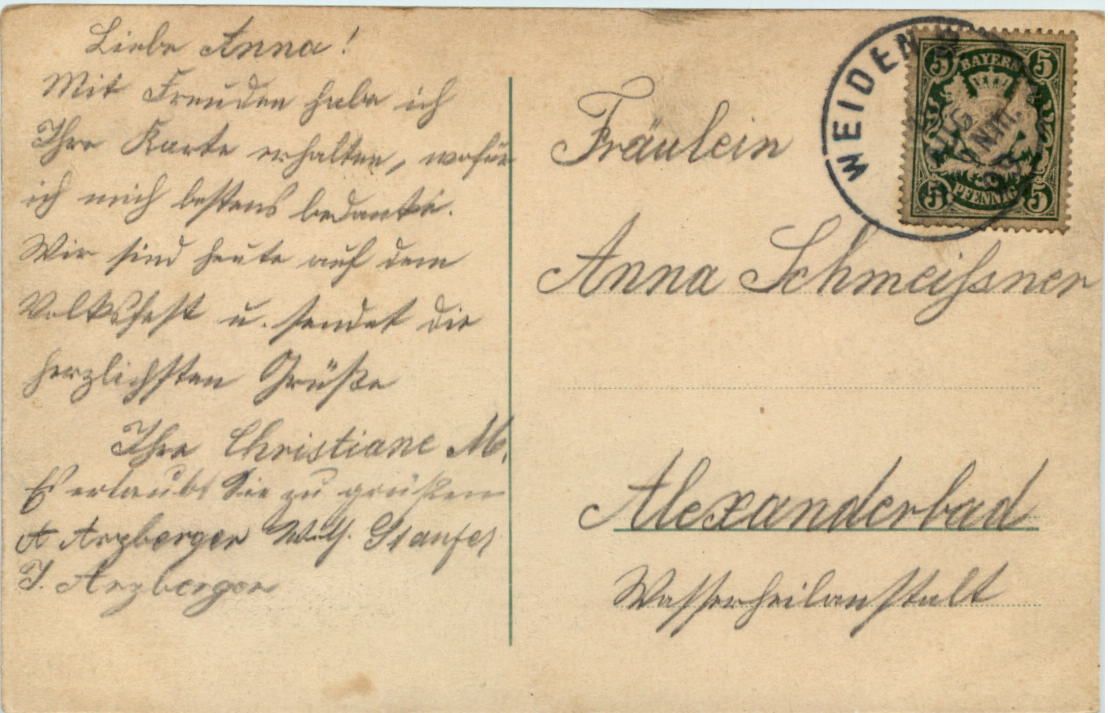 Liebe Anna!
Mit Freuden habe ich
Ihre Karte erhalten, wofür
ich mich bestens bedanke.
Wir sind heute auf dem
Volksfest u. sendet die
herzlichsten Grüße
Ihre Christiane M.
Es erlaubt Sie zu grüßen
A Arzberger
J. Arzberger
WEIDEN
BAYERN
5 5
PFENNIG
5 5
Fräulein
Anna Schmeißner
Alexanderbad
Wasserheilanstalt